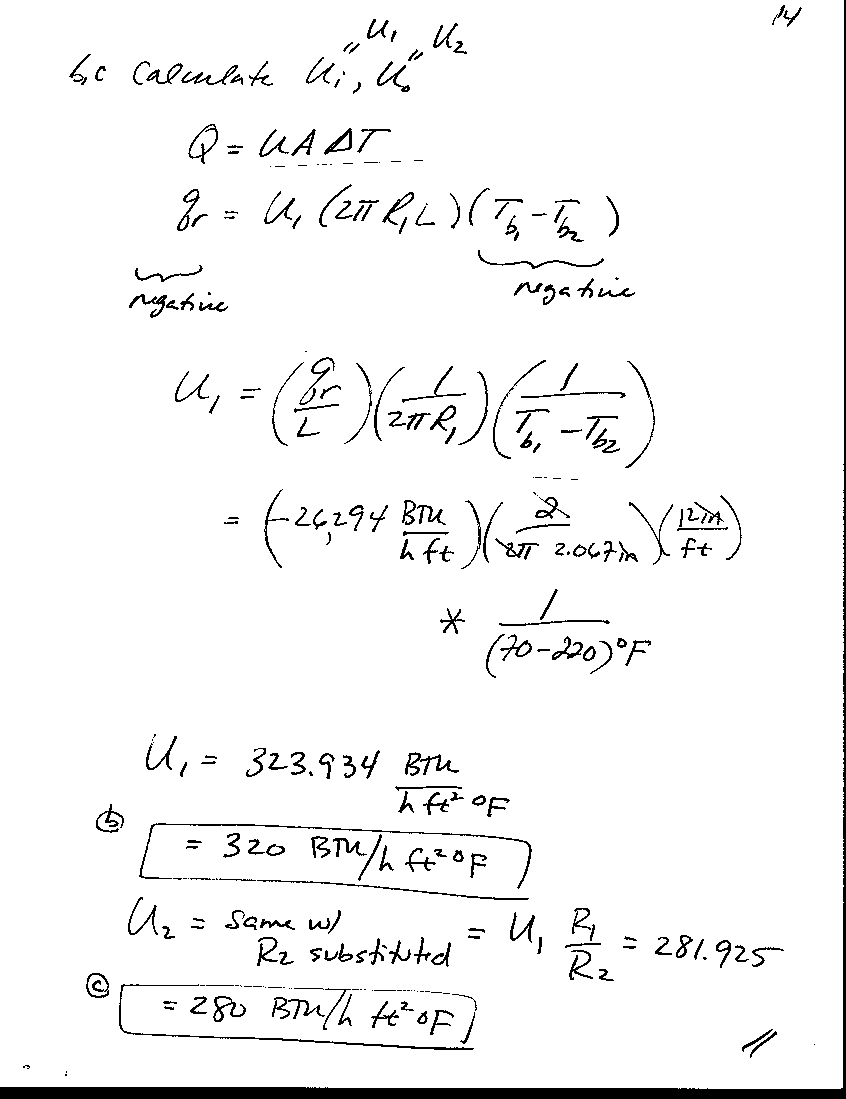 14
"U₁ "U₂
b,c Calculate Uᵢ, Uₒ
Q = UAΔT
qᵣ = U₁ (2π R₁ L)(T_b₁ - T_b₂)
negative negative
U₁ = (qᵣ/L)(1/2πR₁)(1/(T_b₁ - T_b₂))
= (-26,294 BTU/h ft)(2/2π 2.067 in)(12 in/ft)
* 1/(70-220)°F
U₁ = 323.934 BTU/h ft² °F
ⓑ = 320 BTU/h ft² °F
U₂ = same w/ R₂ substituted = U₁ R₁/R₂ = 281.925
ⓒ = 280 BTU/h ft² °F
//